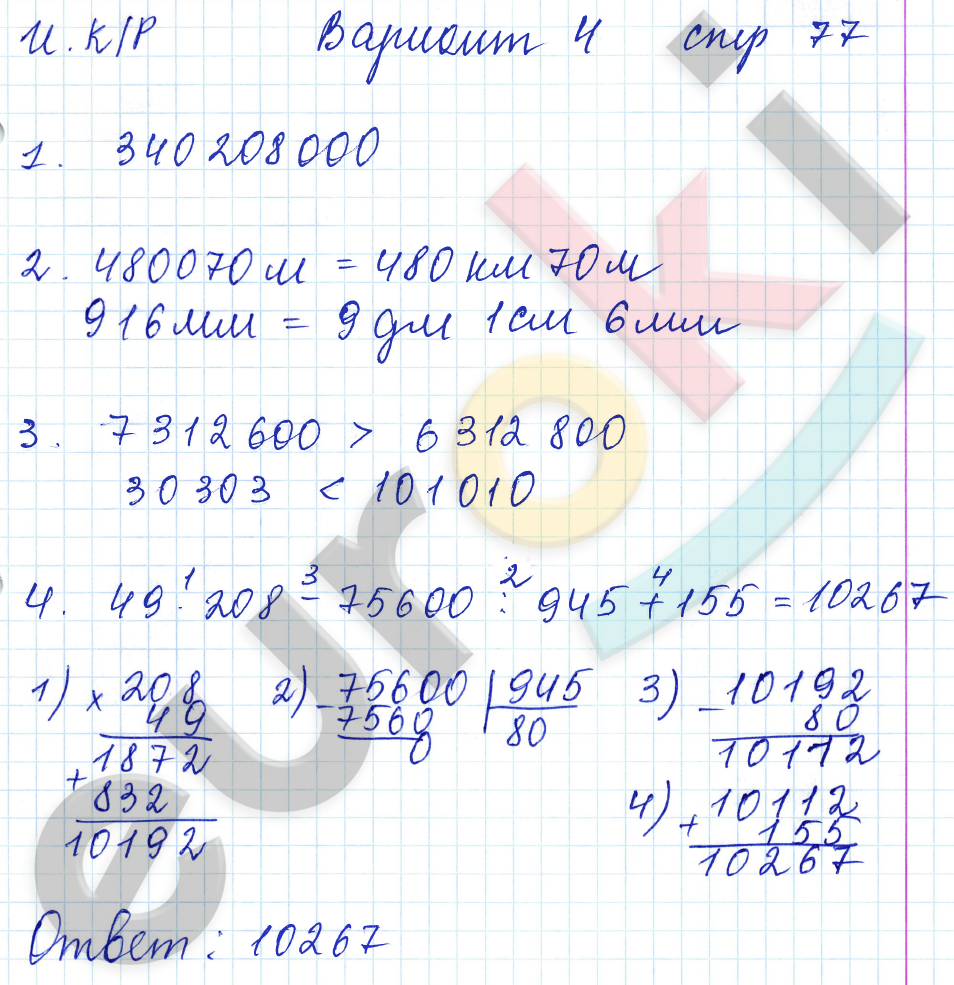 И. К/Р Вариант 4 стр 77
1. 340 208 000
2. 480070 м = 480 км 70 м
916 мм = 9 дм 1 см 6 мм
3. 7 312 600 > 6 312 800
30 303 < 101 010
4. 49 ·¹ 208 −³ 75600 :² 945 +⁴ 155 = 10267
1) × 208 2) − 75600 | 945 3) − 10192
49 7560 80 80
1872 0 10112
+ 832 4) + 10112
10192 155
10267
Ответ: 10267
euroki